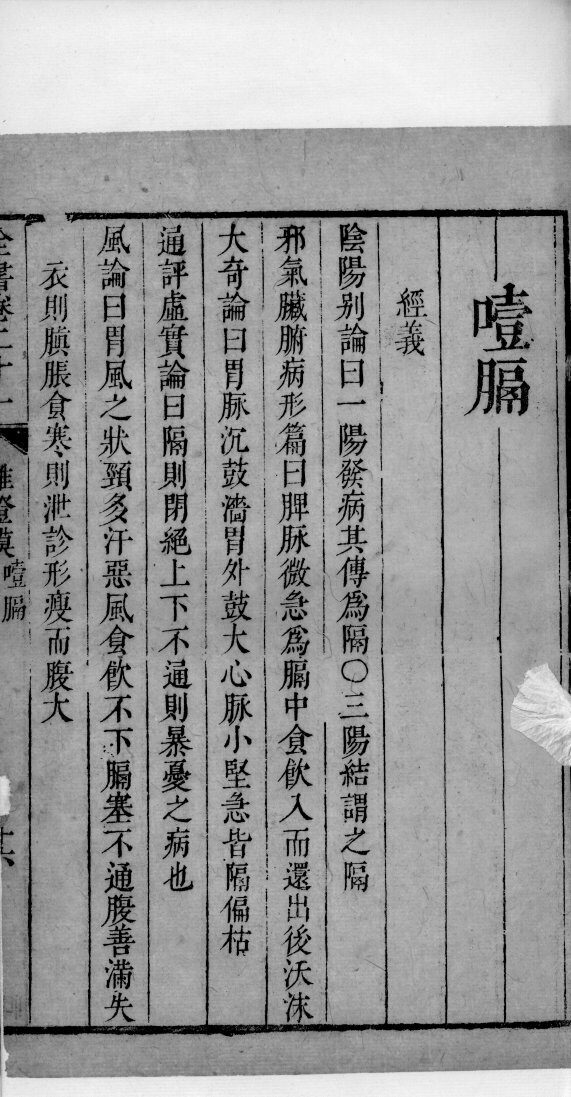 噎膈
經義
陰陽别論曰一陽發病其傳爲隔〇三陽結謂之隔
邪氣臟腑病形篇曰脾脉微急爲膈中食飲入而還出後沃沫
大奇論曰胃脉沉鼓濇胃外鼓大心脉小堅急皆隔偏枯
通評虛實論曰隔則閉絕上下不通則暴憂之病也
風論曰胃風之狀頸多汗惡風食飲不下膈塞不通腹善滿失
衣則䐜脹食寒則泄診形瘦而腹大
全書卷二十一
雜證謨 噎膈